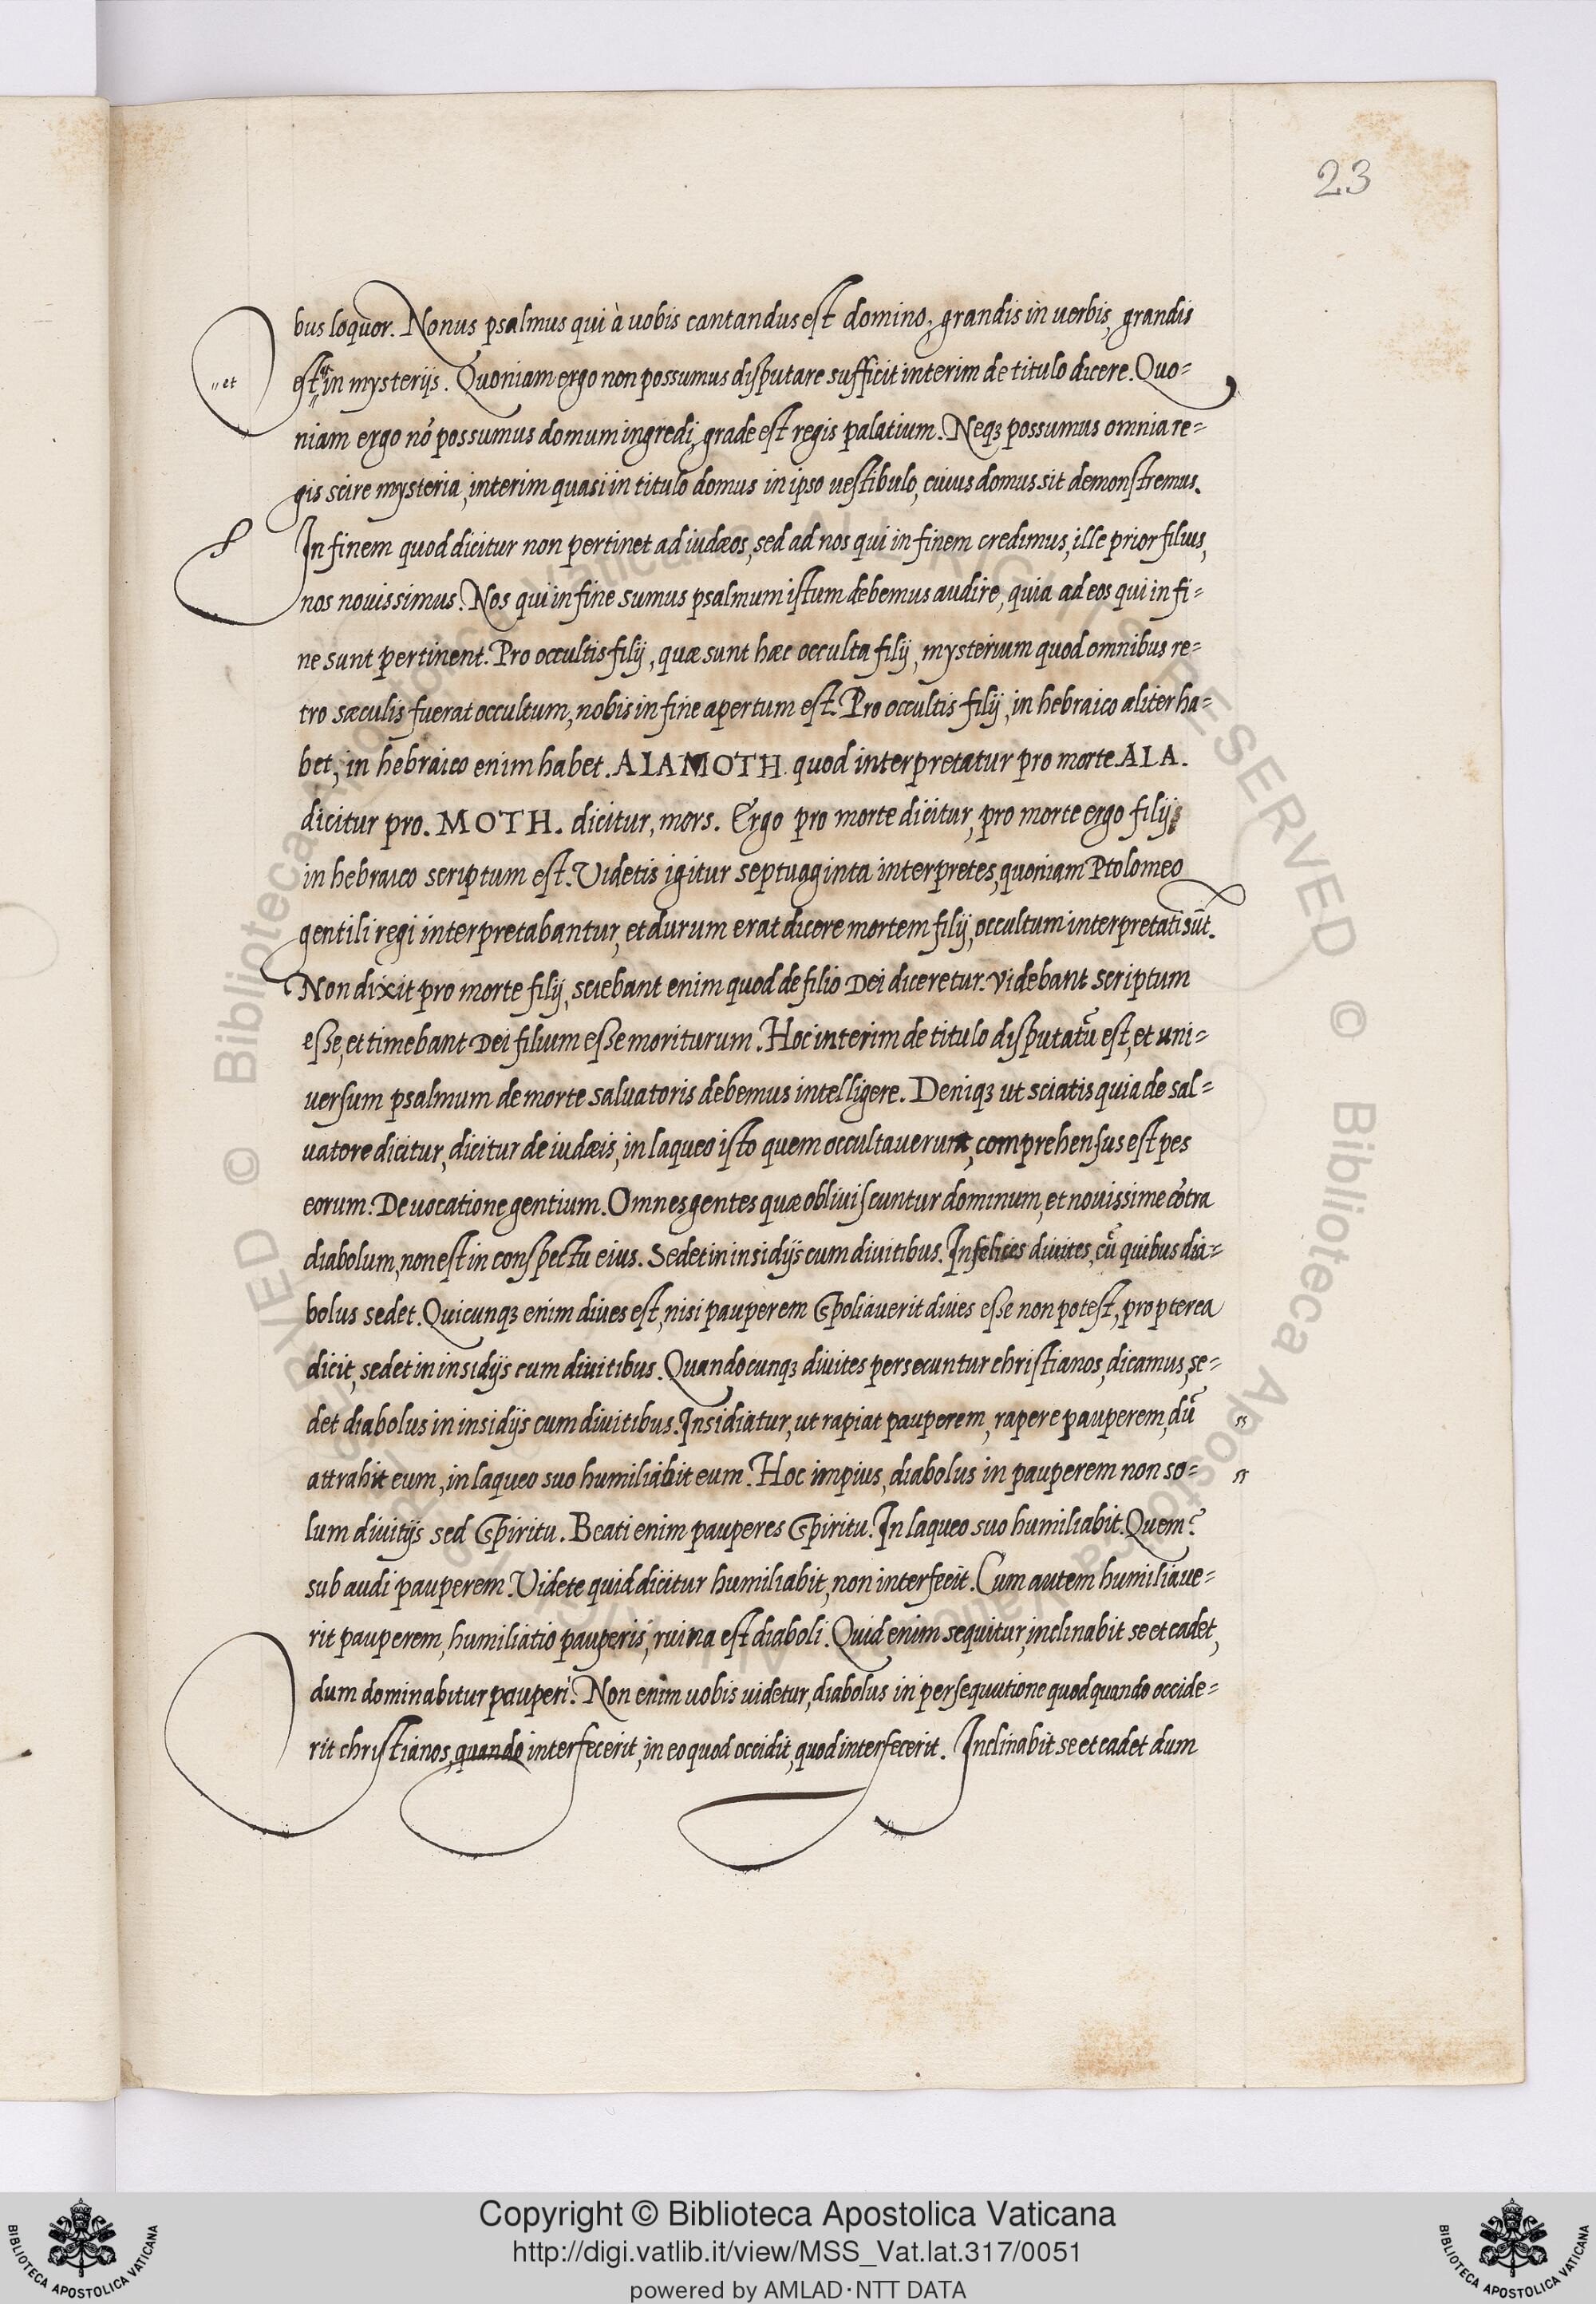 23
bus loquor. Nonus psalmus qui à uobis cantandus est domino, grandis in uerbis, grandis
,, et
est in mysterijs. Quoniam ergo non possumus disputare sufficit interim de titulo dicere. Quo=
niam ergo nõ possumus domum ingredi, grade est regis palatium. Neqꝫ possumus omnia re=
gis scire mysteria, interim quasi in titulo domus in ipso uestibulo, cuius domus sit demonstremus.
In finem quod dicitur non pertinet ad iudæos, sed ad nos qui in finem credimus, ille prior filius,
nos nouissimus. Nos qui in fine sumus psalmum istum debemus audire, quia ad eos qui in fi=
ne sunt pertinent. Pro occultis filij, quæ sunt hæc occulta filij, mysterium quod omnibus re=
tro sæculis fuerat occultum, nobis in fine apertum est. Pro occultis filij, in hebraico aliter ha=
bet, in hebraico enim habet. ALAMOTH quod interpretatur pro morte ALA.
dicitur pro. MOTH. dicitur, mors. Ergo pro morte dicitur, pro morte ergo filij
in hebraico scriptum est. Uidetis igitur septuaginta interpretes, quoniam Ptolomeo
gentili regi interpretabantur, et durum erat dicere mortem filij, occultum interpretati sũt.
Non dixit pro morte filij, sciebant enim quod de filio Dei diceretur. Videbant scriptum
esse, et timebant Dei filium esse moriturum. Hoc interim de titulo disputatũ est, et uni=
uersum psalmum de morte saluatoris debemus intelligere. Deniqꝫ ut sciatis quia de sal=
uatore dicitur, dicitur de iudæis, in laqueo isto quem occultauerunt, comprehensus est pes
eorum. De uocatione gentium. Omnes gentes quæ obliuiscuntur dominum, et nouissime cõtra
diabolum, non est in conspectu eius. Sedet in insidijs cum diuitibus. Infelices diuites, cũ quibus dia=
bolus sedet. Quicunqꝫ enim diues est, nisi pauperem spoliauerit diues esse non potest, propterea
dicit, sedet in insidijs cum diuitibus. Quandocunqꝫ diuites persecuntur christianos, dicamus, se=
det diabolus in insidijs cum diuitibus. Insidiatur, ut rapiat pauperem, rapere pauperem, dũ
attrahit eum, in laqueo suo humiliabit eum. Hoc impius, diabolus in pauperem non so=
lum diuitijs sed spiritu. Beati enim pauperes spiritu. In laqueo suo humiliabit. Quem?
sub audi pauperem. Uidete quid dicitur humiliabit, non interfecit. Cum autem humiliaue=
rit pauperem, humiliatio pauperis, ruina est diaboli. Quid enim sequitur, inclinabit se et cadet,
dum dominabitur pauperi. Non enim uobis uidetur, diabolus in persequutione quod quando occide=
rit christianos, quando interfecerit, in eo quod occidit, quod interfecerit. Inclinabit se et cadet dum
Copyright © Biblioteca Apostolica Vaticana
http://digi.vatlib.it/view/MSS_Vat.lat.317/0051
powered by AMLAD·NTT DATA